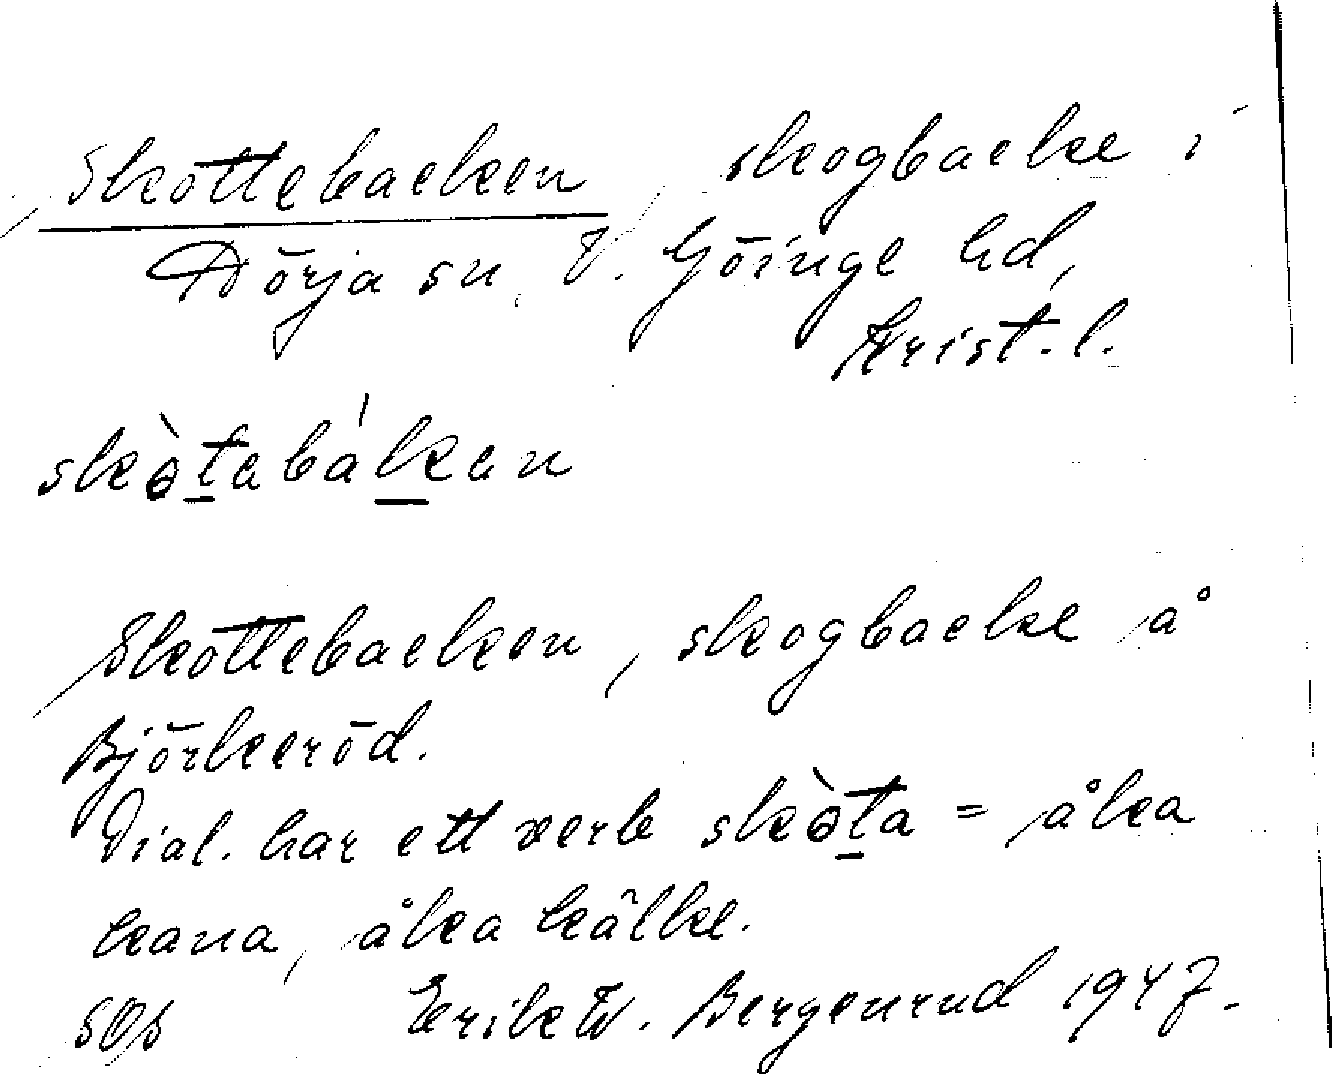 Skottebacken, skogbacke i
Dörja sn, V. Göinge hd,
Krist. l.
skòtabákan
Skottebacken, skogbacke å
Björkeröd.
Dial. har ett verb skòta = åka
kana, åka kälke.
Erik W. Bergenrud 1947.